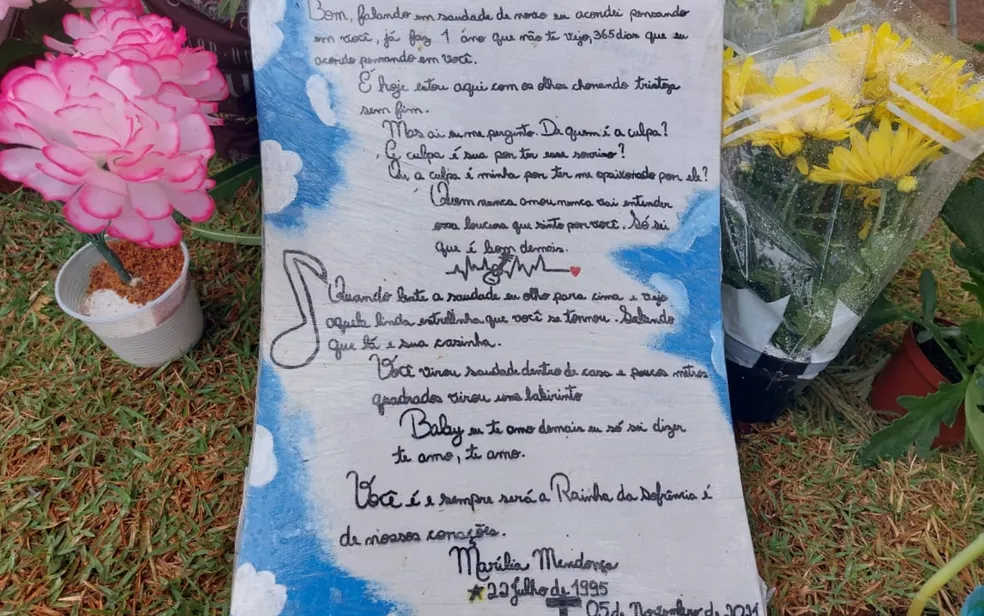 Bom, falando em saudade de novo eu acordei pensando
em você, já faz 1 ano que não te vejo, 365 dias que eu
acordo pensando em você.
E hoje estou aqui com os olhos chorando tristeza
sem fim.
Mas ai eu me pergunto. Di quem é a culpa?
A culpa é sua por ter esse sorriso?
Ou a culpa é minha por ter me apaixonado por ele?
Quem nunca amou nunca vai entender
essa loucura que sinto por você. Só sei
que é bom demais.
Quando bate a saudade eu olho para cima e vejo
aquela linda estrelinha que você se tornou. Sabendo
que lá é sua casinha.
Você virou saudade dentro de casa e poucos metros
quadrados virou um labirinto
Baby eu te amo demais eu só sei dizer
te amo, te amo.
Você é e sempre será a Rainha da Sofrência é
de nossos corações.
Marília Mendonça
22 Julho de 1995
05 de Novembro de 2021